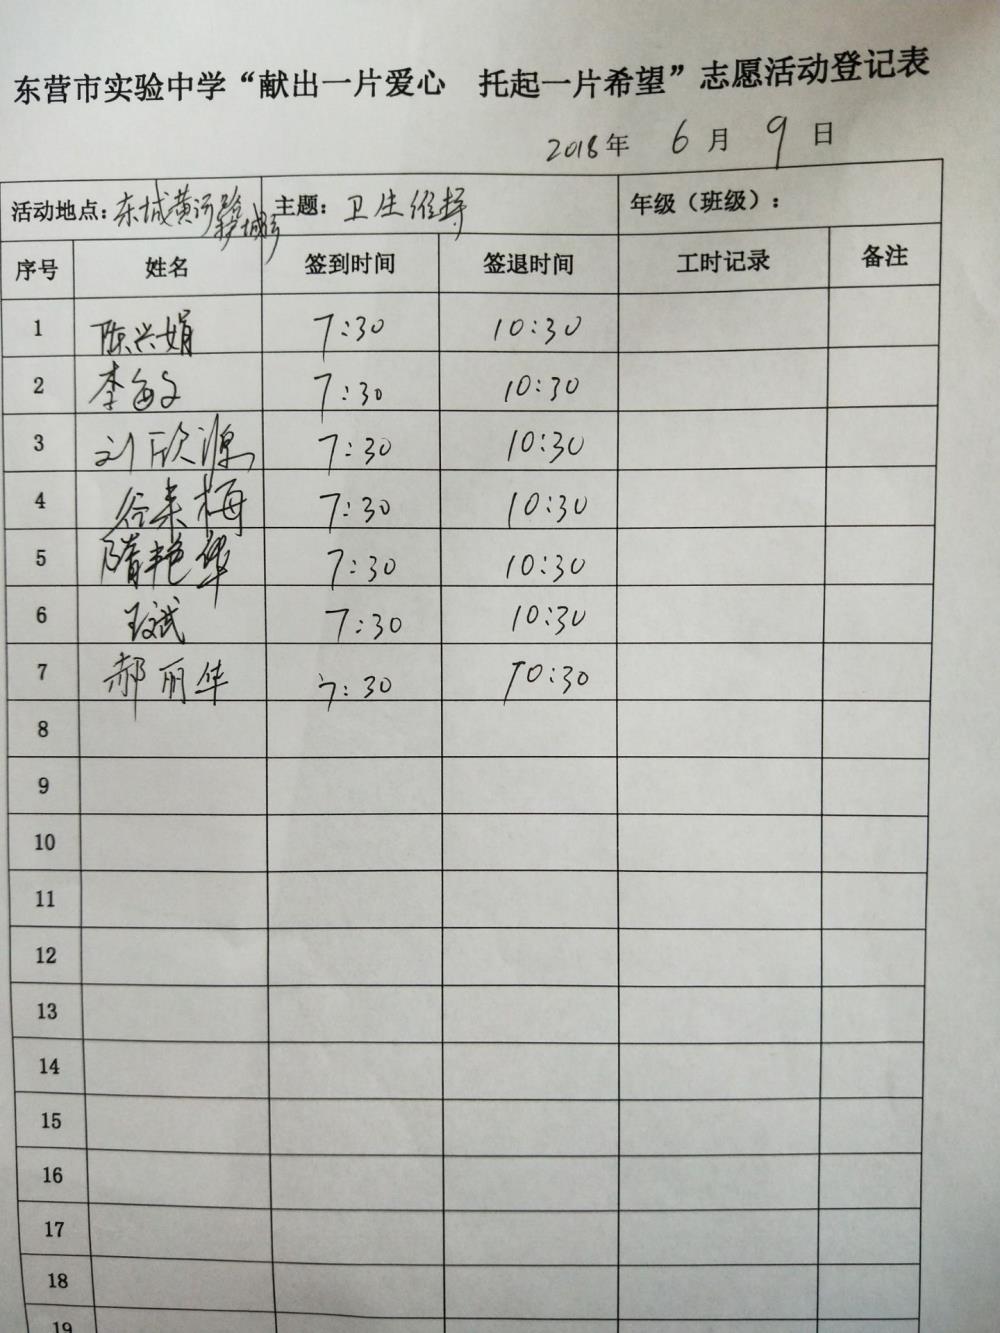 东营市实验中学“献出一片爱心 托起一片希望”志愿活动登记表
2018年 6 月 9 日
活动地点：东城黄河路 主题：卫生维持 年级（班级）：
序号 姓名 签到时间 签退时间 工时记录 备注
1 陈兴娟 7:30 10:30
2 李敏 7:30 10:30
3 刘欣源 7:30 10:30
4 谷来梅 7:30 10:30
5 隋艳华 7:30 10:30
6 王斌 7:30 10:30
7 郝丽华 7:30 10:30
8
9
10
11
12
13
14
15
16
17
18
19